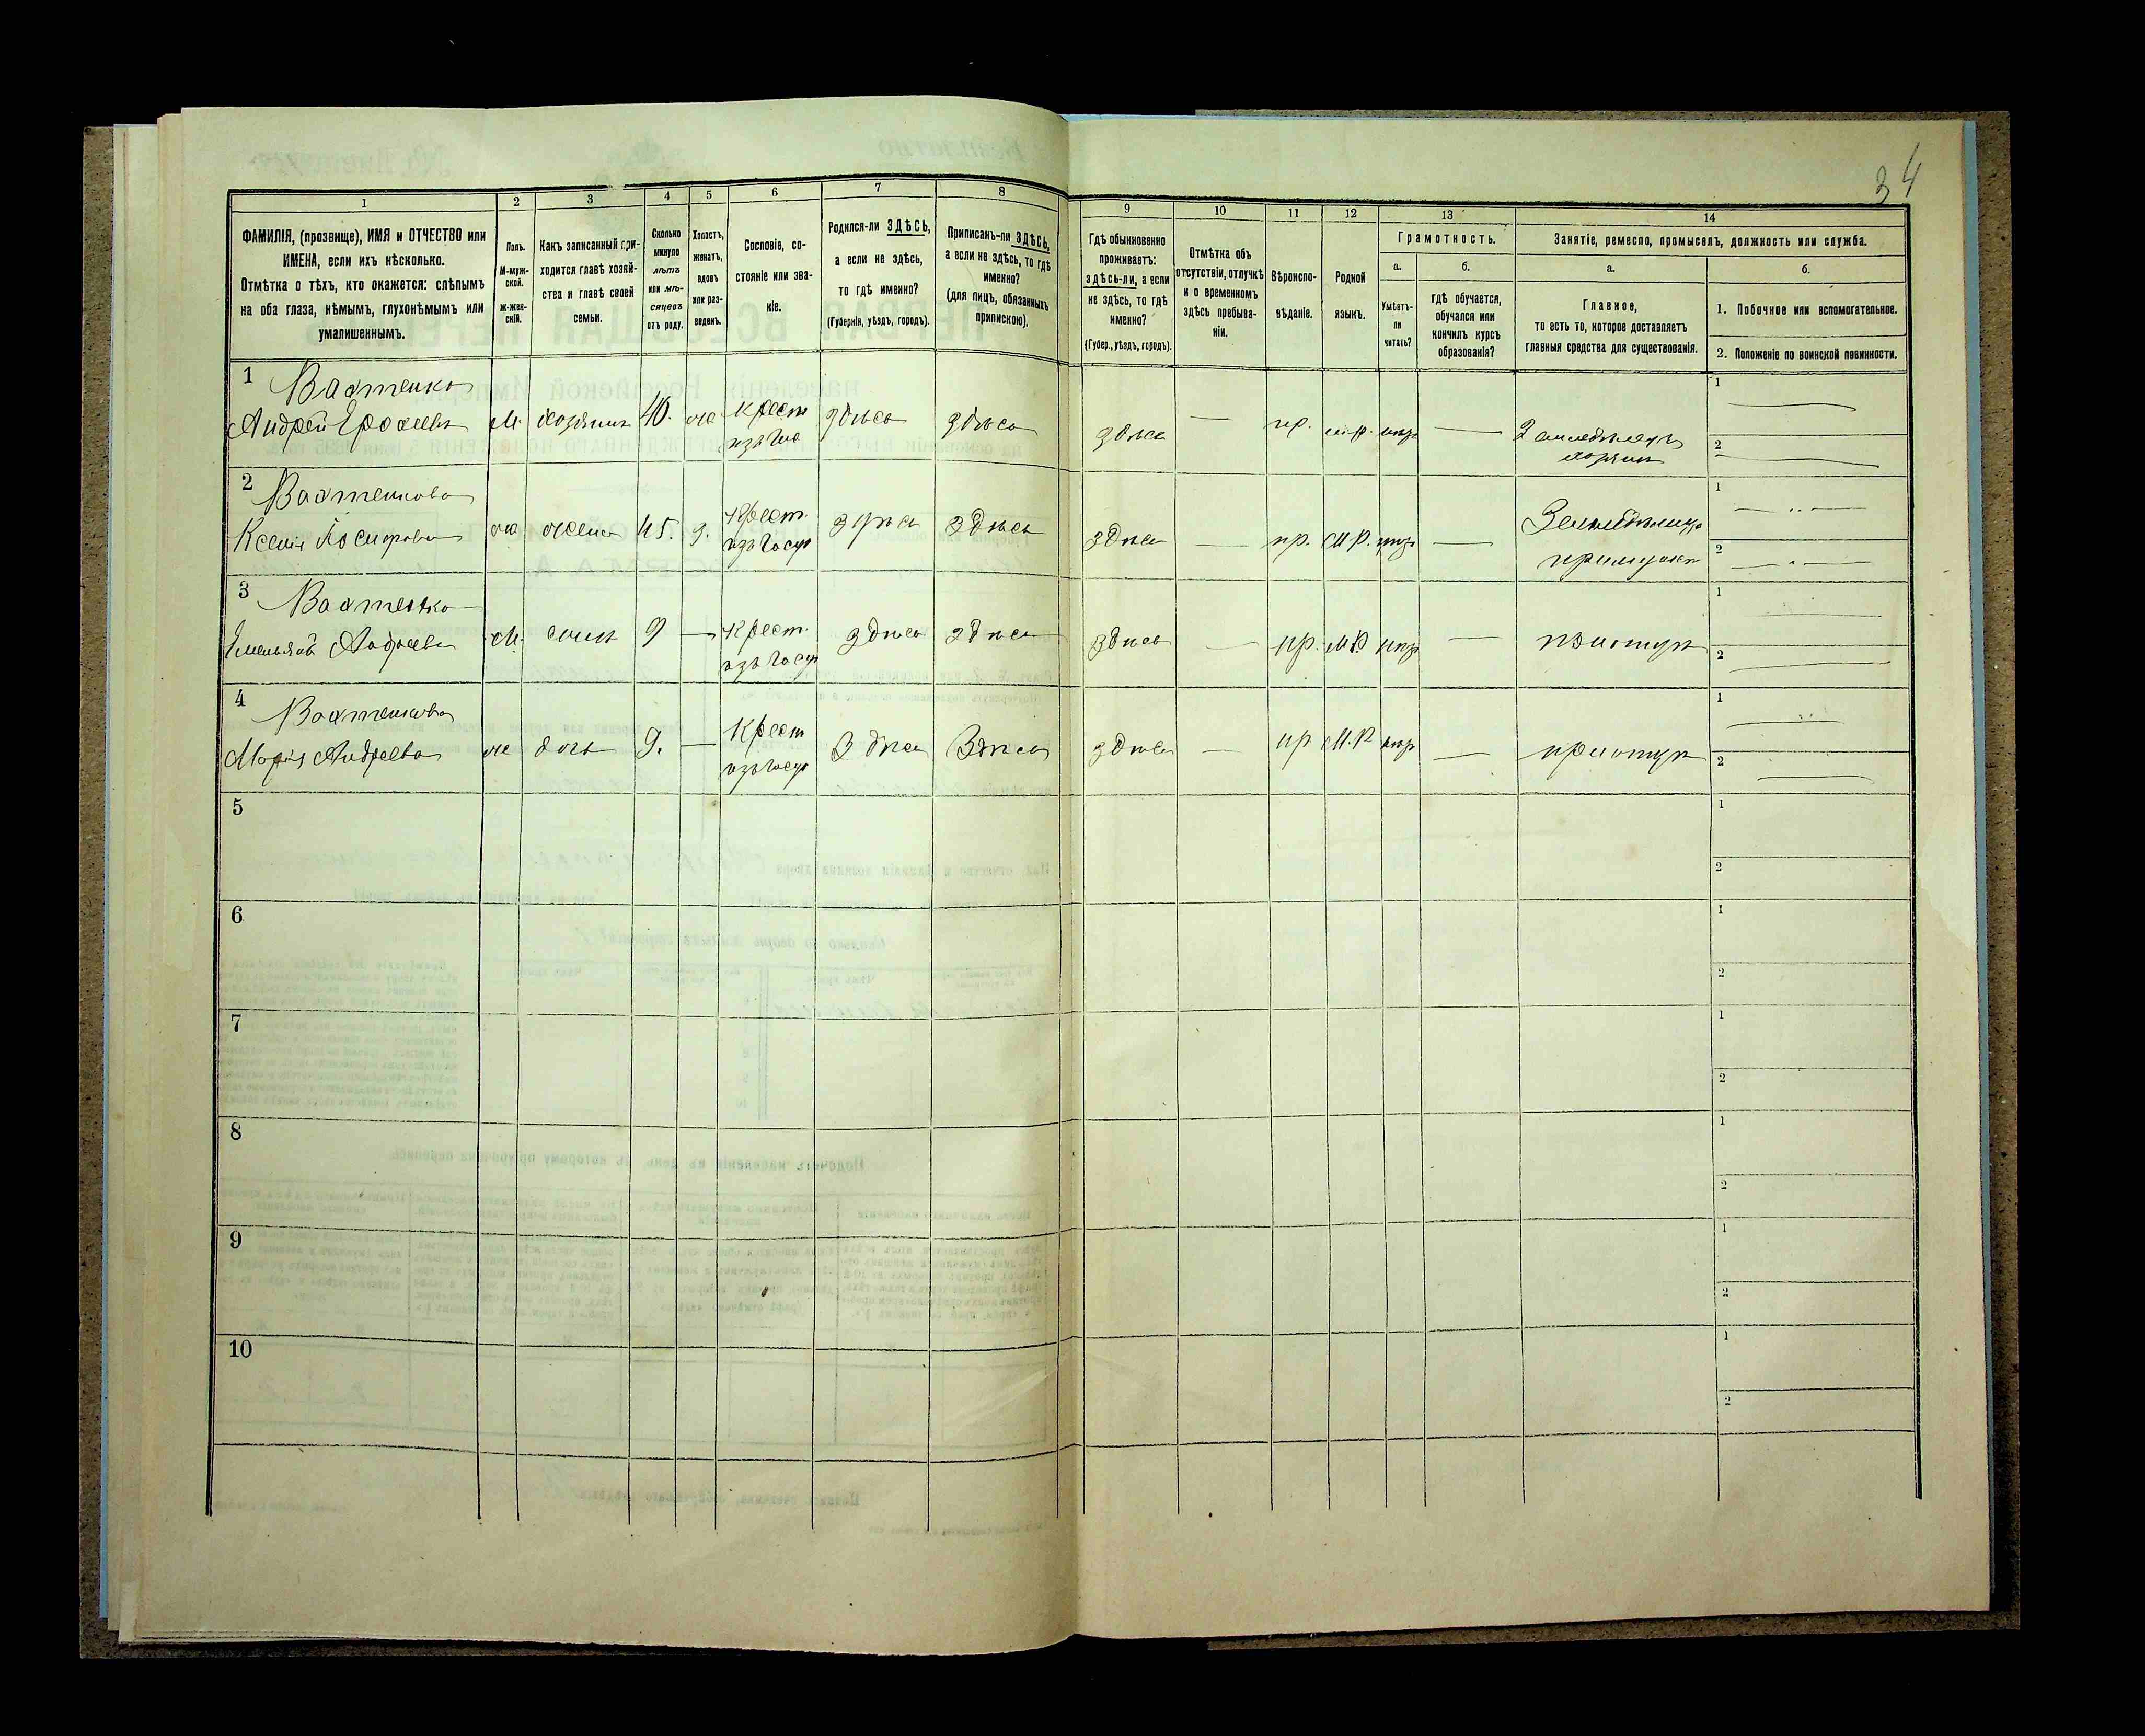 34
1
2
3
4
5
6
7
8
9
10
11
12
13
14
ФАМИЛІЯ, (прозвище), ИМЯ и ОТЧЕСТВО или
ИМЕНА, если ихъ нѣсколько.
Отмѣтка о тѣхъ, кто окажется: слѣпымъ
на оба глаза, нѣмымъ, глухонѣмымъ или
умалишеннымъ.
Полъ.
М-муж-
ской.
ж-жен-
скій.
Какъ записанный при-
ходится главѣ хозяй-
ства и главѣ своей
семьи.
Сколько
минуло
лѣтъ
или мѣ-
сяцевъ
отъ роду.
Холостъ,
женатъ,
вдовъ
или раз-
веденъ.
Сословіе, со-
стояніе или зва-
ніе.
Родился-ли ЗДѢСЬ,
а если не здѣсь,
то гдѣ именно?
(Губернія, уѣздъ, городъ).
Приписанъ-ли ЗДѢСЬ,
а если не здѣсь, то гдѣ
именно?
(для лицъ, обязанныхъ
припискою).
Гдѣ обыкновенно
проживаетъ:
здѣсь-ли, а если
не здѣсь, то гдѣ
именно?
(Губер., уѣздъ, городъ).
Отмѣтка объ
отсутствіи, отлучкѣ
и о временномъ
здѣсь пребыва-
ніи.
Вѣроиспо-
вѣданіе.
Родной
языкъ.
Грамотность.
а.
Умѣетъ-
ли
читать?
б.
гдѣ обучается,
обучался или
кончилъ курсъ
образованія?
Занятіе, ремесло, промыселъ, должность или служба.
а.
Главное,
то есть то, которое доставляетъ
главныя средства для существованія.
б.
1. Побочное или вспомогательное.
2. Положеніе по воинской повинности.
1 Вахтенко
Андрей м. хозяинъ 40. ж Крест здѣсь здѣсь здѣсь — пр. м.р. —
хозяинъ
1
2
2 Вахтенкова
Ксенія ж жена 45. з. Крест. здѣсь здѣсь здѣсь — пр. м.р. —
изъ госуд
1
2
3 Вахтенко
Емельянъ Андреевъ м. сынъ 9 — Крест. здѣсь здѣсь здѣсь — пр. м.р. —
изъ госуд
1
2
4 Вахтенкова
Марія Андреева ж дочь 9. — Крест здѣсь здѣсь здѣсь — пр м.р. —
изъ госуд
1
2
5
1
2
6
1
2
7
1
2
8
1
2
9
1
2
10
1
2